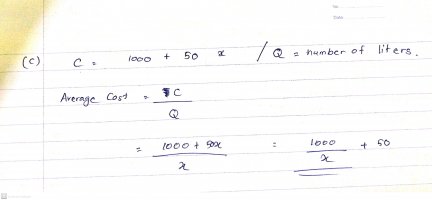 (c) C = 1000 + 50 x / Q = number of liters.
Average Cost = C
Q
= 1000 + 50x = 1000 + 50
x x